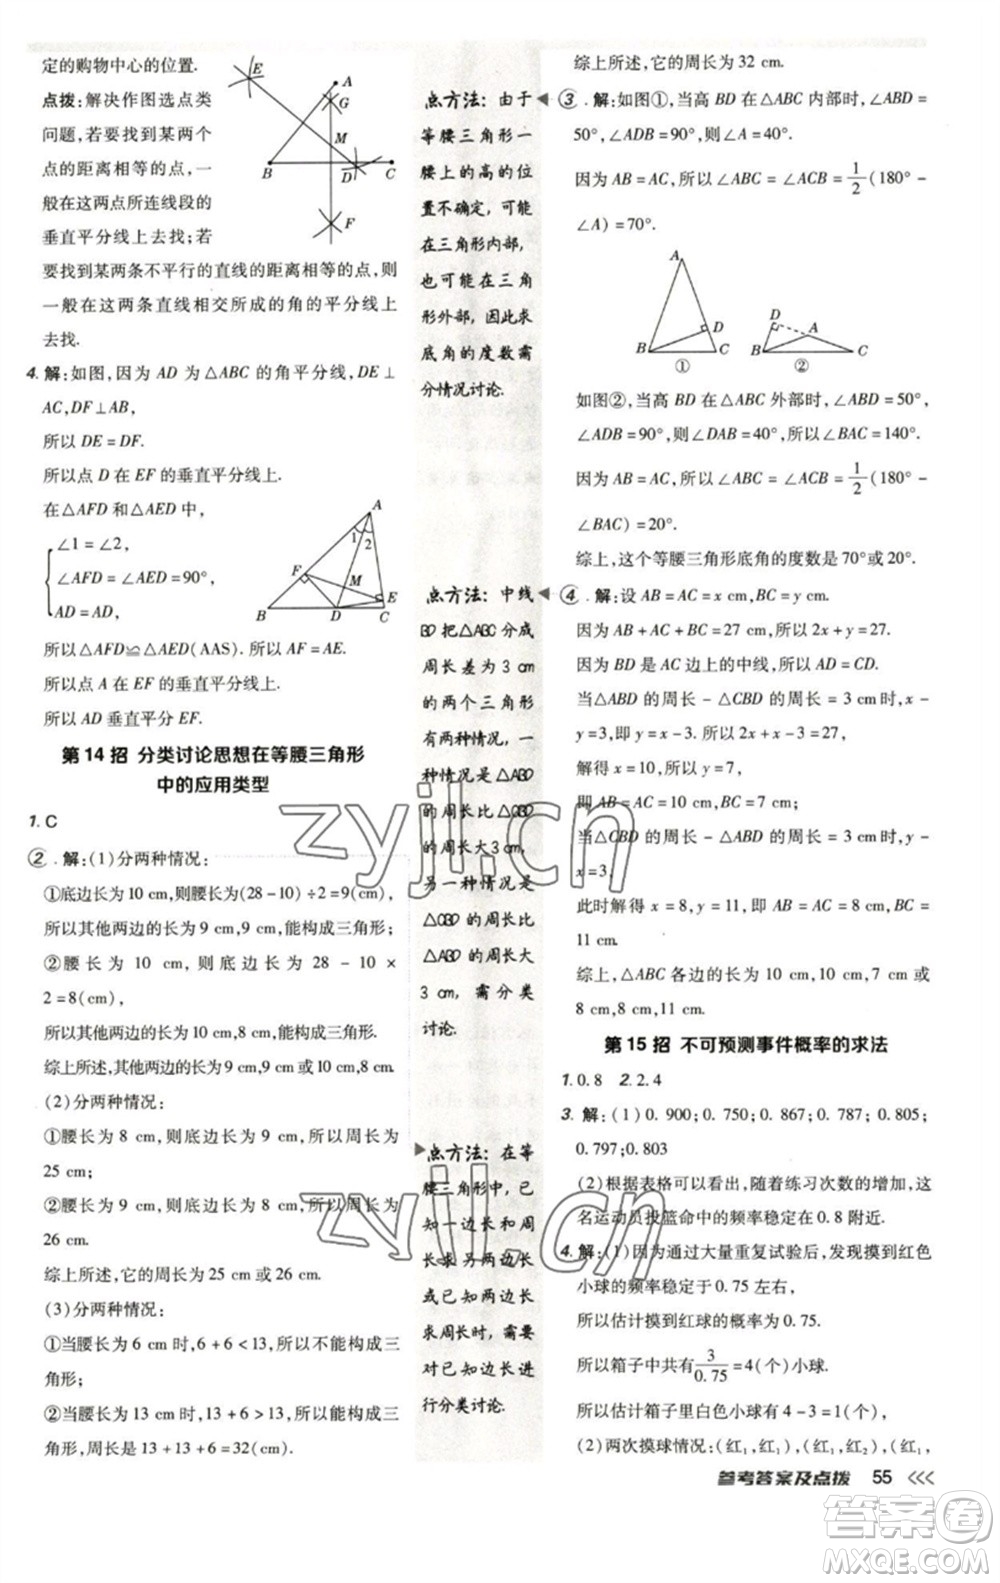 定的购物中心的位置.
点拨:解决作图选点类
问题,若要找到某两个
点的距离相等的点,一
般在这两点所连线段的
垂直平分线上去找;若
要找到某两条不平行的直线的距离相等的点,则
一般在这两条直线相交所成的角的平分线上
去找.
E A G M B D C F
4. 解:如图,因为 AD 为△ABC 的角平分线,DE⊥
AC,DF⊥AB,
所以 DE = DF.
所以点 D 在 EF 的垂直平分线上.
在△AFD 和△AED 中,
∠1 = ∠2,
∠AFD = ∠AED = 90°,
AD = AD,
A 1 2 F M E B D C
所以△AFD≌△AED(AAS).所以 AF = AE.
所以点 A 在 EF 的垂直平分线上.
所以 AD 垂直平分 EF.
第 14 招 分类讨论思想在等腰三角形
中的应用类型
1. C
2. 解:(1)分两种情况:
①底边长为 10 cm,则腰长为(28 - 10) ÷ 2 = 9(cm),
所以其他两边的长为 9 cm,9 cm,能构成三角形;
②腰长为 10 cm,则底边长为 28 - 10 ×
2 = 8(cm),
所以其他两边的长为 10 cm,8 cm,能构成三角形.
综上所述,其他两边的长为 9 cm,9 cm 或 10 cm,8 cm.
(2)分两种情况:
①腰长为 8 cm,则底边长为 9 cm,所以周长为
25 cm;
②腰长为 9 cm,则底边长为 8 cm,所以周长为
26 cm.
综上所述,它的周长为 25 cm 或 26 cm.
(3)分两种情况:
①当腰长为 6 cm 时,6 + 6 < 13,所以不能构成三
角形;
②当腰长为 13 cm 时,13 + 6 > 13,所以能构成三
角形,周长是 13 + 13 + 6 = 32(cm).
点方法:由于
等腰三角形一
腰上的高的位
置不确定,可能
在三角形内部,
也可能在三角
形外部,因此求
底角的度数需
分情况讨论.
点方法:中线
BD 把△ABC 分成
周长差为 3 cm
的两个三角形
有两种情况,一
种情况是△ABD
的周长比△CBD
的周长大3 cm,
另一种情况是
△CBD 的周长比
△ABD 的周长大
3 cm,需分类
讨论.
点方法:在等
腰三角形中,已
知一边长和周
长求另两边长
或已知两边长
求周长时,需要
对已知边长进
行分类讨论.
综上所述,它的周长为 32 cm.
3. 解:如图①,当高 BD 在△ABC 内部时,∠ABD =
50°,∠ADB = 90°,则∠A = 40°.
因为 AB = AC,所以∠ABC = ∠ACB = 1/2(180° -
∠A) = 70°.
A D B C ①
D A B C ②
如图②,当高 BD 在△ABC 外部时,∠ABD = 50°,
∠ADB = 90°,则∠DAB = 40°,所以∠BAC = 140°.
因为 AB = AC,所以∠ABC = ∠ACB = 1/2(180° -
∠BAC) = 20°.
综上,这个等腰三角形底角的度数是 70°或 20°.
4. 解:设 AB = AC = x cm,BC = y cm.
因为 AB + AC + BC = 27 cm,所以 2x + y = 27.
因为 BD 是 AC 边上的中线,所以 AD = CD.
当△ABD 的周长 - △CBD 的周长 = 3 cm 时,x -
y = 3.所以 2x + x - 3 = 27.
解得 x = 10,所以 y = 7,
即 AB = AC = 10 cm,BC = 7 cm.
当△CBD 的周长 - △ABD 的周长 = 3 cm 时,y -
x = 3.
此时解得 x = 8,y = 11,即 AB = AC = 8 cm,BC =
11 cm.
综上,△ABC 各边的长为 10 cm,10 cm,7 cm 或
8 cm,8 cm,11 cm.
第 15 招 不可预测事件概率的求法
1. 0. 8 2. 2. 4
3. 解:(1)0. 900;0. 750;0. 867;0. 787;0. 805;
0. 797;0. 803
(2)根据表格可以看出,随着练习次数的增加,这
名运动员投篮命中的频率稳定在 0. 8 附近.
4. 解:(1)因为通过大量重复试验后,发现摸到红色
小球的频率稳定于 0. 75 左右,
所以估计摸到红球的概率为 0. 75.
所以箱子中共有 3/0. 75 = 4(个)小球.
所以估计箱子里白色小球有 4 - 3 = 1(个).
(2)两次摸球情况:(红₁,红₁),(红₁,红₂),(红₁,
参考答案及点拨 55
zyjl.cn
zyjl.cn
答案圈
MXQE.COM